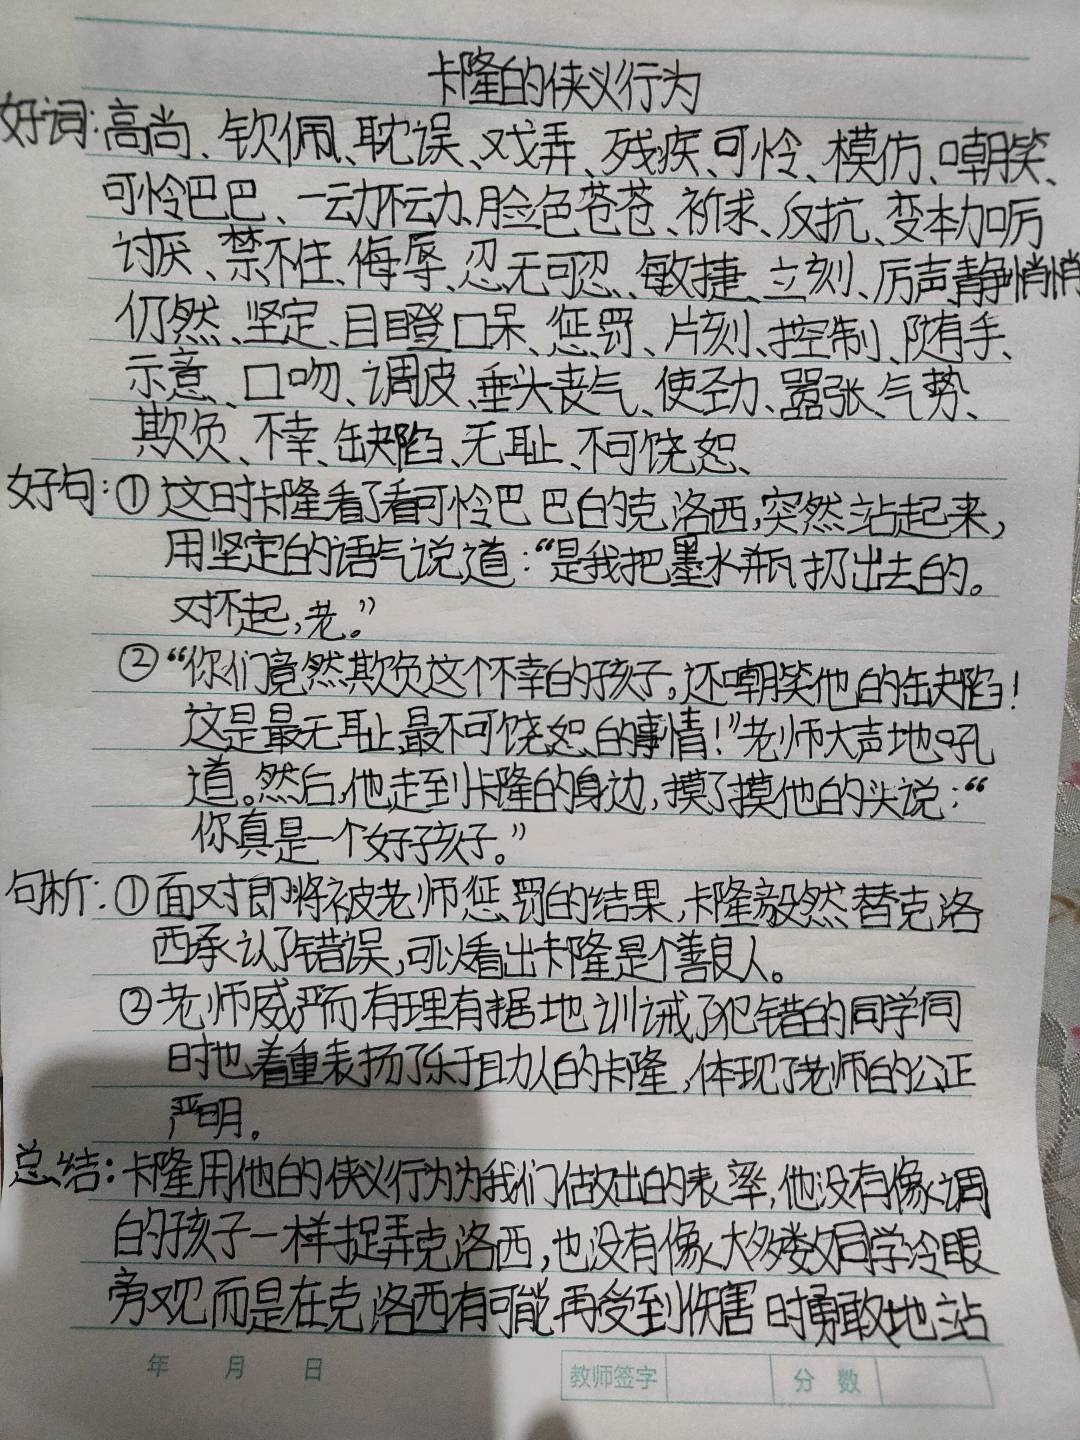 卡隆的侠义行为
好词:高尚、钦佩、耽误、戏弄、残疾、可怜、模仿、嘲笑、
可怜巴巴、一动不动、脸色苍苍、祈求、反抗、变本加厉
讨厌、禁不住、侮辱、忍无可忍、敏捷、立刻、厉声、静悄悄
仍然、坚定、目瞪口呆、惩罚、片刻、控制、随手、
示意、口吻、调皮、垂头丧气、使劲、嚣张、气势、
欺负、不幸、缺陷、无耻、不可饶恕、
好句:①这时卡隆看了看可怜巴巴的克洛西,突然站起来,
用坚定的语气说道:“是我把墨水瓶扔出去的。
对不起,老。”
②“你们竟然欺负这个不幸的孩子,还嘲笑他的缺陷!
这是最无耻、最不可饶恕的事情!”老师大声地吼
道。然后,他走到卡隆的身边,摸了摸他的头说:“
你真是一个好孩子。”
句析:①面对即将被老师惩罚的结果,卡隆毅然替克洛
西承认了错误,可以看出卡隆是个善良人。
②老师威严而有理有据地训诫了犯错的同学同
时也着重表扬了乐于助人的卡隆,体现了老师的公正
严明。
总结:卡隆用他的侠义行为为我们做出的表率,他没有像调
的孩子一样捉弄克洛西,也没有像大多数同学冷眼
旁观而是在克洛西有可能再受到伤害时勇敢地站
年 月 日 教师签字 分数